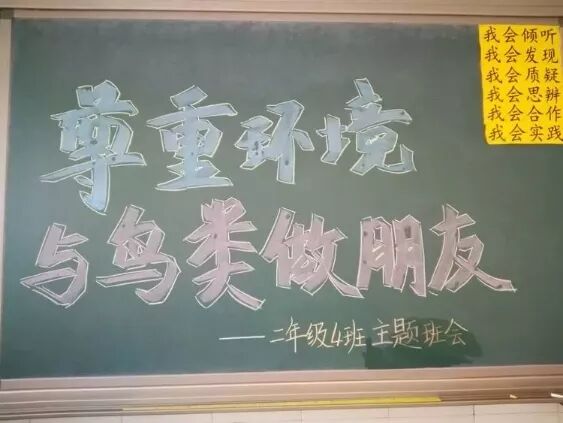 尊重环境
与鸟类做朋友
——二年级4班主题班会
我会倾听
我会发现
我会质疑
我会思辨
我会合作
我会实践